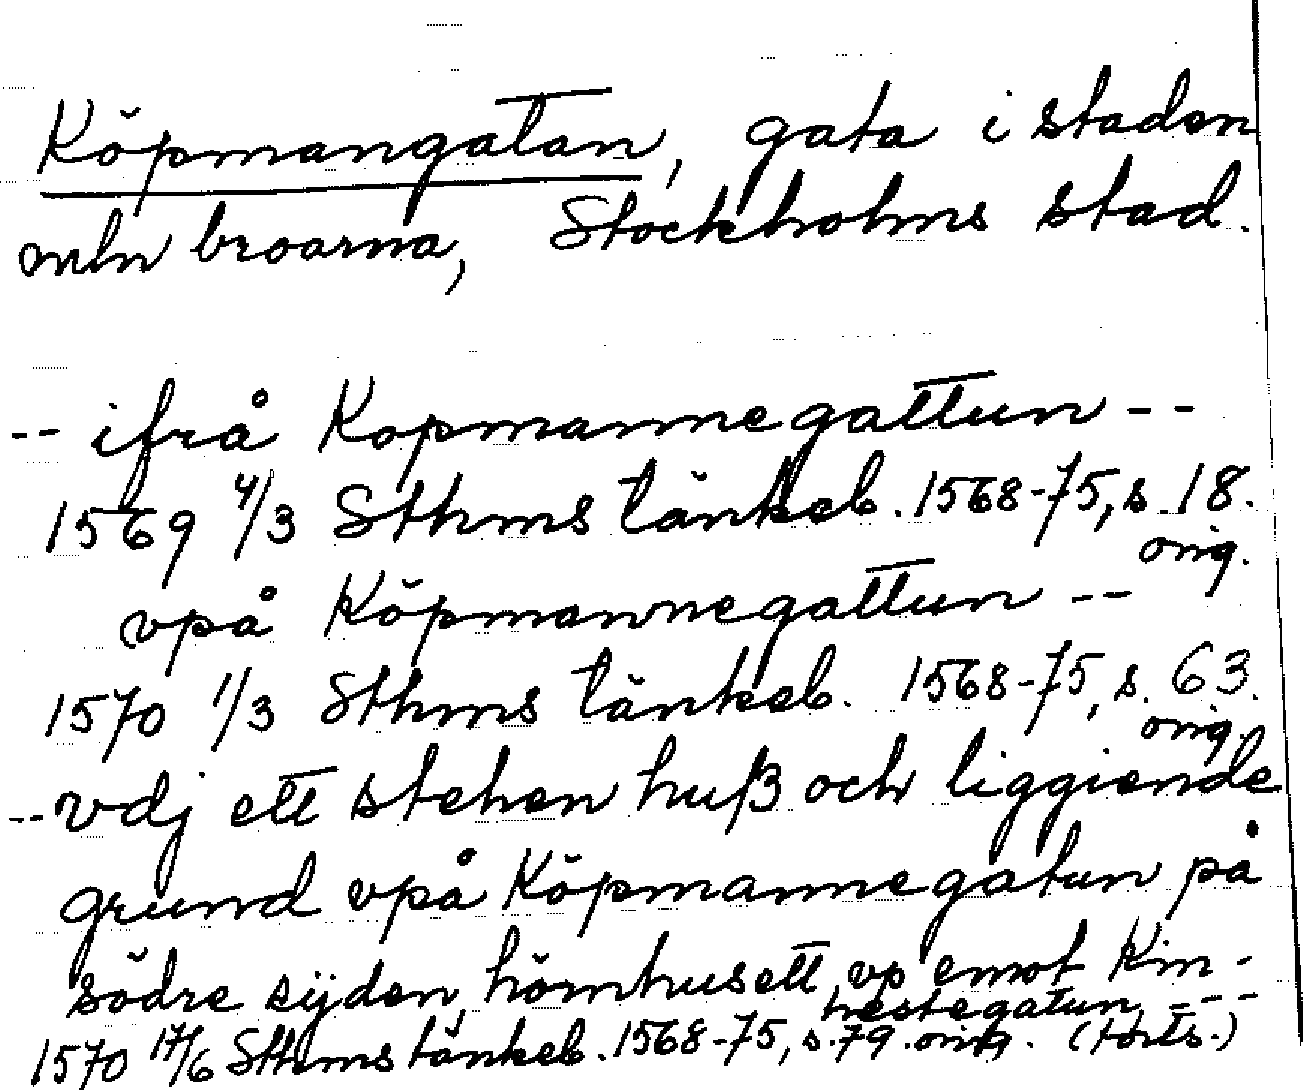 Köpmangatan, gata i staden
mln broarna, Stockholms stad.
-- ifrå Kopmannegattun --
1569 4/3 Sthms tänkeb. 1568-75, s. 18.
orig.
vpå Köpmannegattun --
1570 1/3 Sthms tänkeb. 1568-75, s. 63.
orig.
-- vdj ett stehen huß och liggiende
grund vpå Köpmannegatun på
södre sijden, hörnhusett, vp emot Kin-
hestegatun ---
1570 17/6 Sthms tänkeb. 1568-75, s. 79. orig. (forts.)